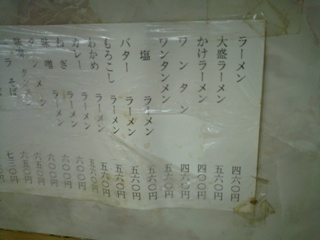 ラーメン 四六〇円
大盛ラーメン 五六〇円
かけラーメン 四〇〇円
ワンタン 四六〇円
ワンタンメン 五六〇円
塩ラーメン 五六〇円
バターラーメン 五六〇円
もろこしラーメン 五六〇円
わかめラーメン 五六〇円
カレーラーメン 六〇〇円
ねぎラーメン 六〇〇円